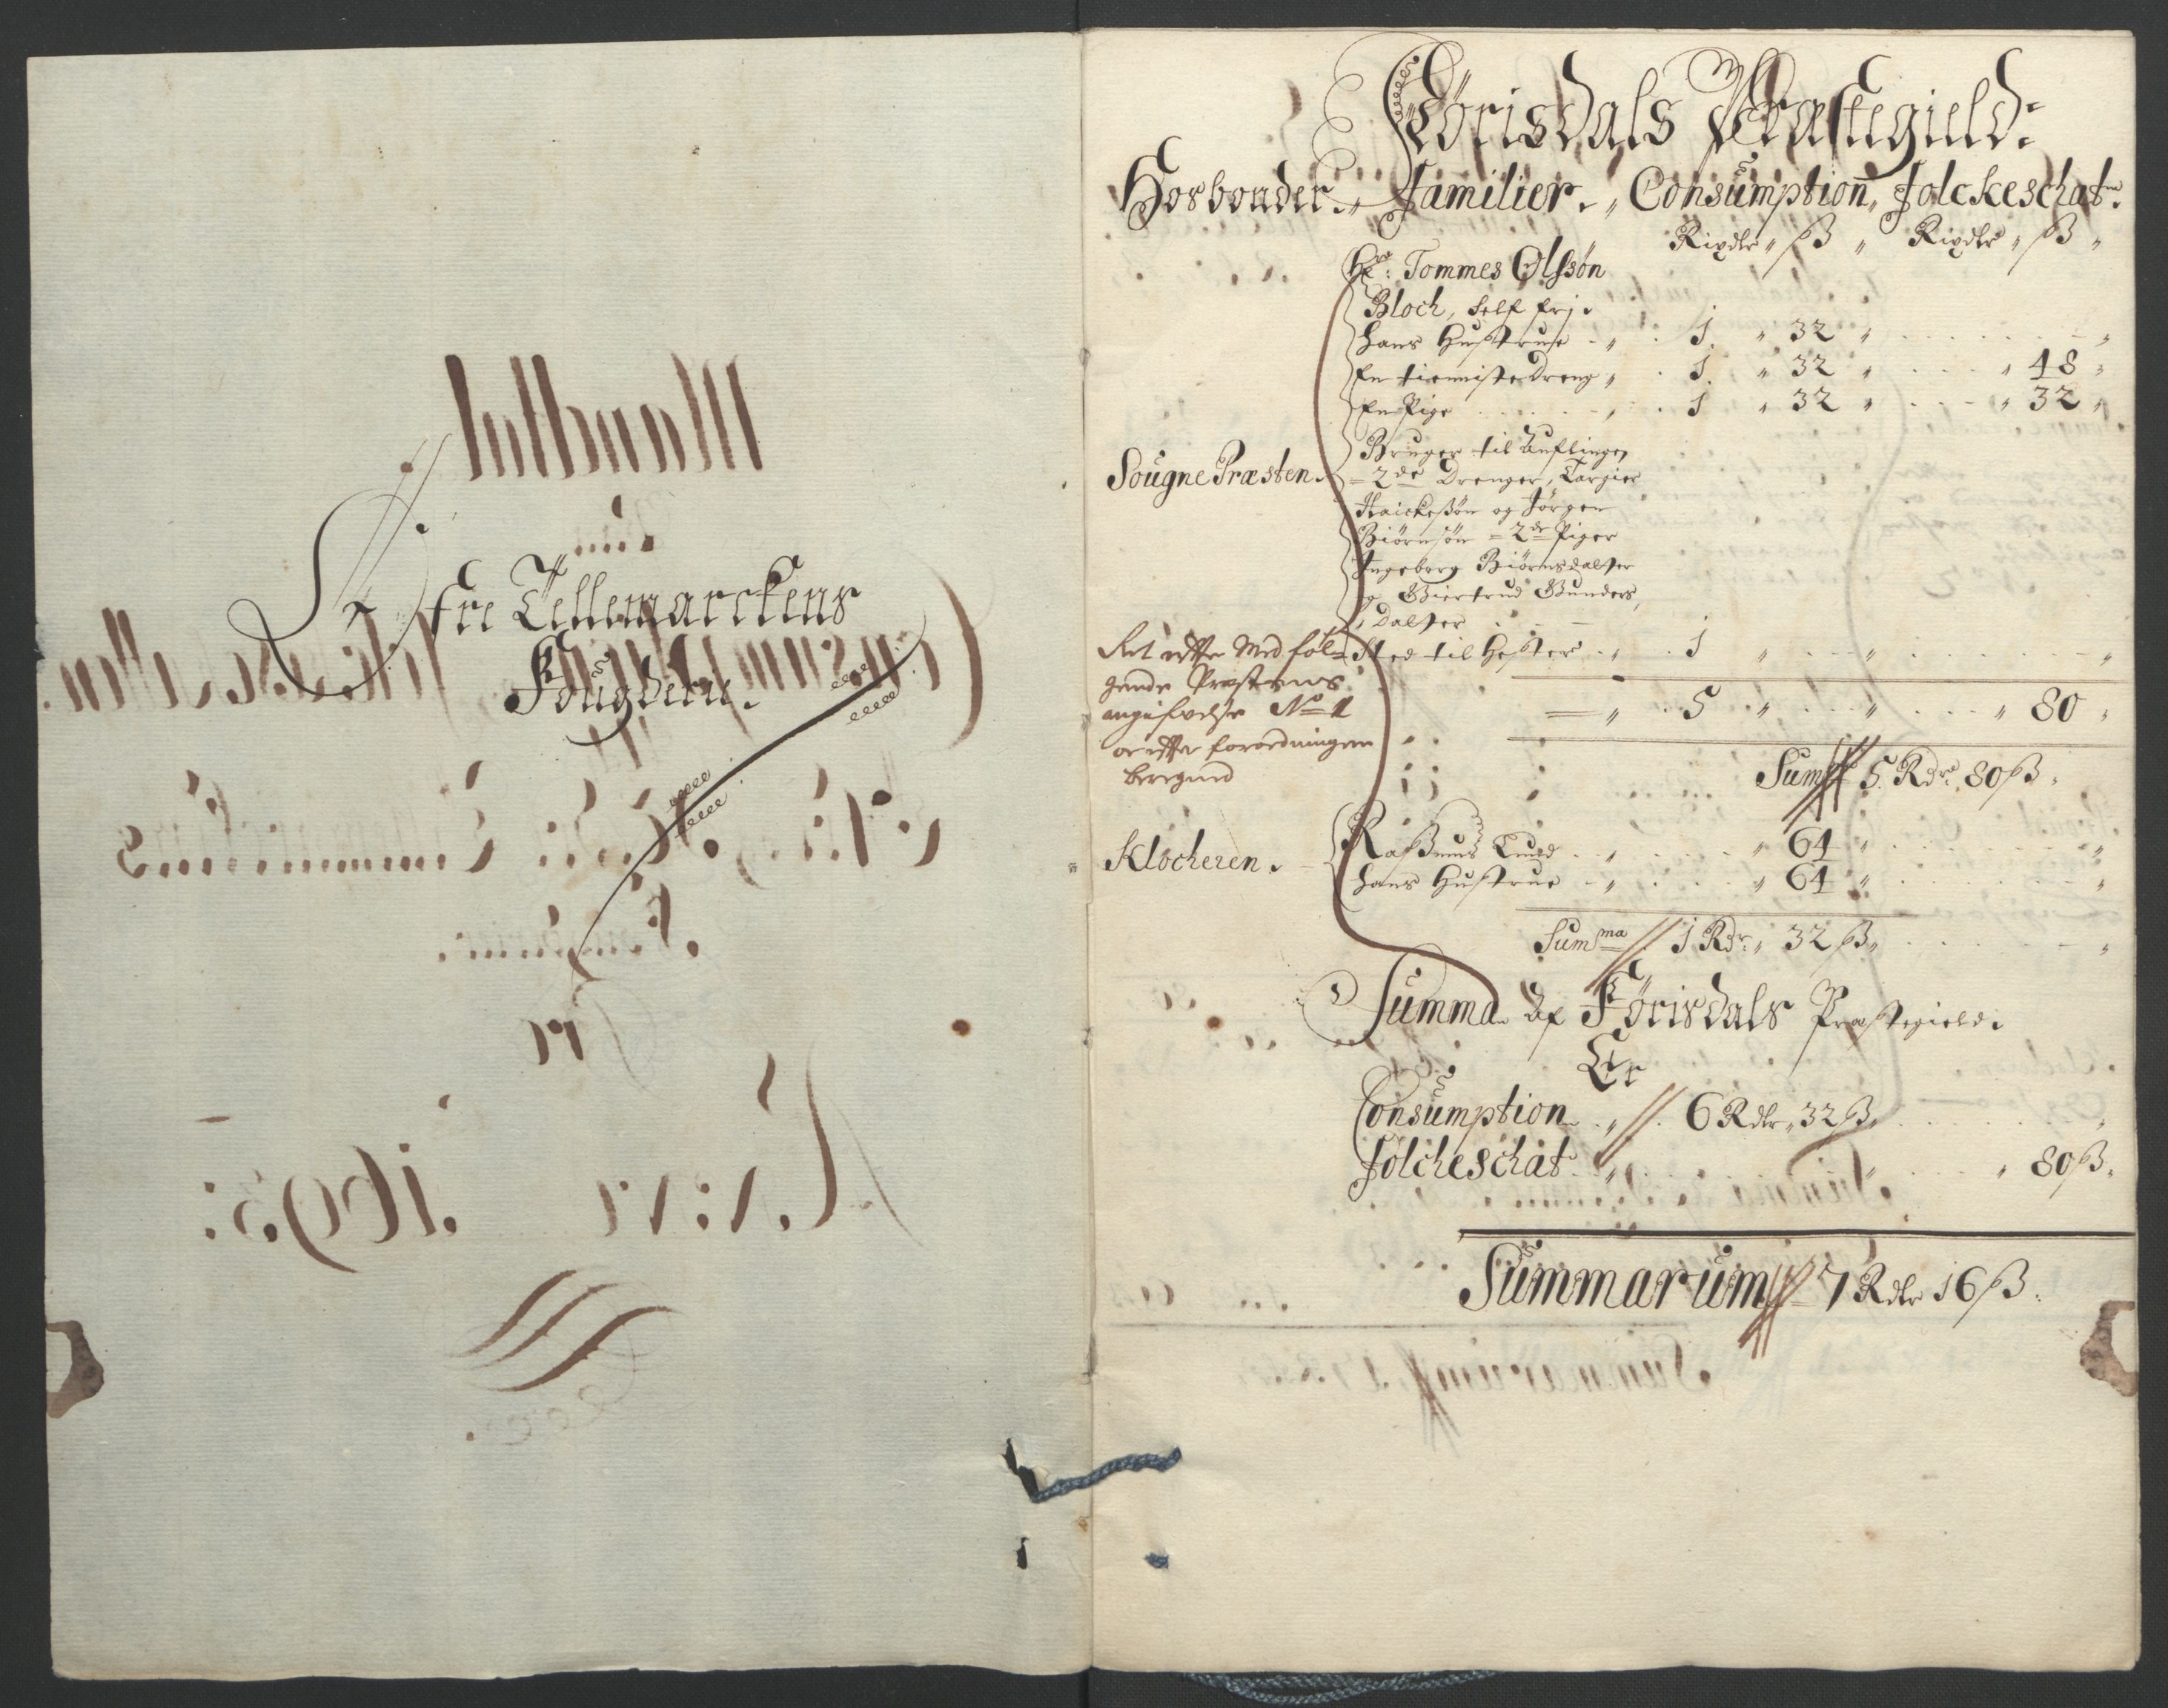 Øfre Tellemarckens
Fougderie.
Førisdals Præstegield:
Hosbonder. Familier. Consumption, Folckeschat.
Rixdlr ß Rixdlr ß
Hr: Tommes Olssøn
Bloch, Self frj.
hans Hustrue 1 32
En tienniste dreng 1 32 48
En Pige 1 32 32
Bruger til Auflingen
2de Drenger, Targier
Haickesøn og Jørgen
Biørnsøn 2de Piger
Ingeborg Biørnsdatter
og Giertrud Gunders
datter
Sted til Hester 1
Sougne Præsten.
Ret efter Med føl-
gende Præstens
angifvelse No 1
oc efter forordningen
beregned
5 80
Summa 5 Rdr 80 ß.
Klocheren. Rasmus Lund 64
hans Hustrue 64
Summa 1 Rdr 32 ß
Summa Af Førisdals Præstegield.
Er
Consumption 6 Rdlr 32 ß
Folcheschat 80 ß.
Summarum 7 Rdlr 16 ß.